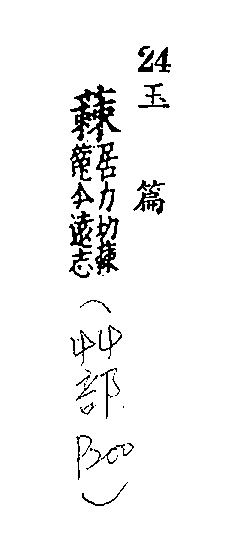 24
玉篇
蕀
居力切蕀
蒬今遠志
（艸部
）